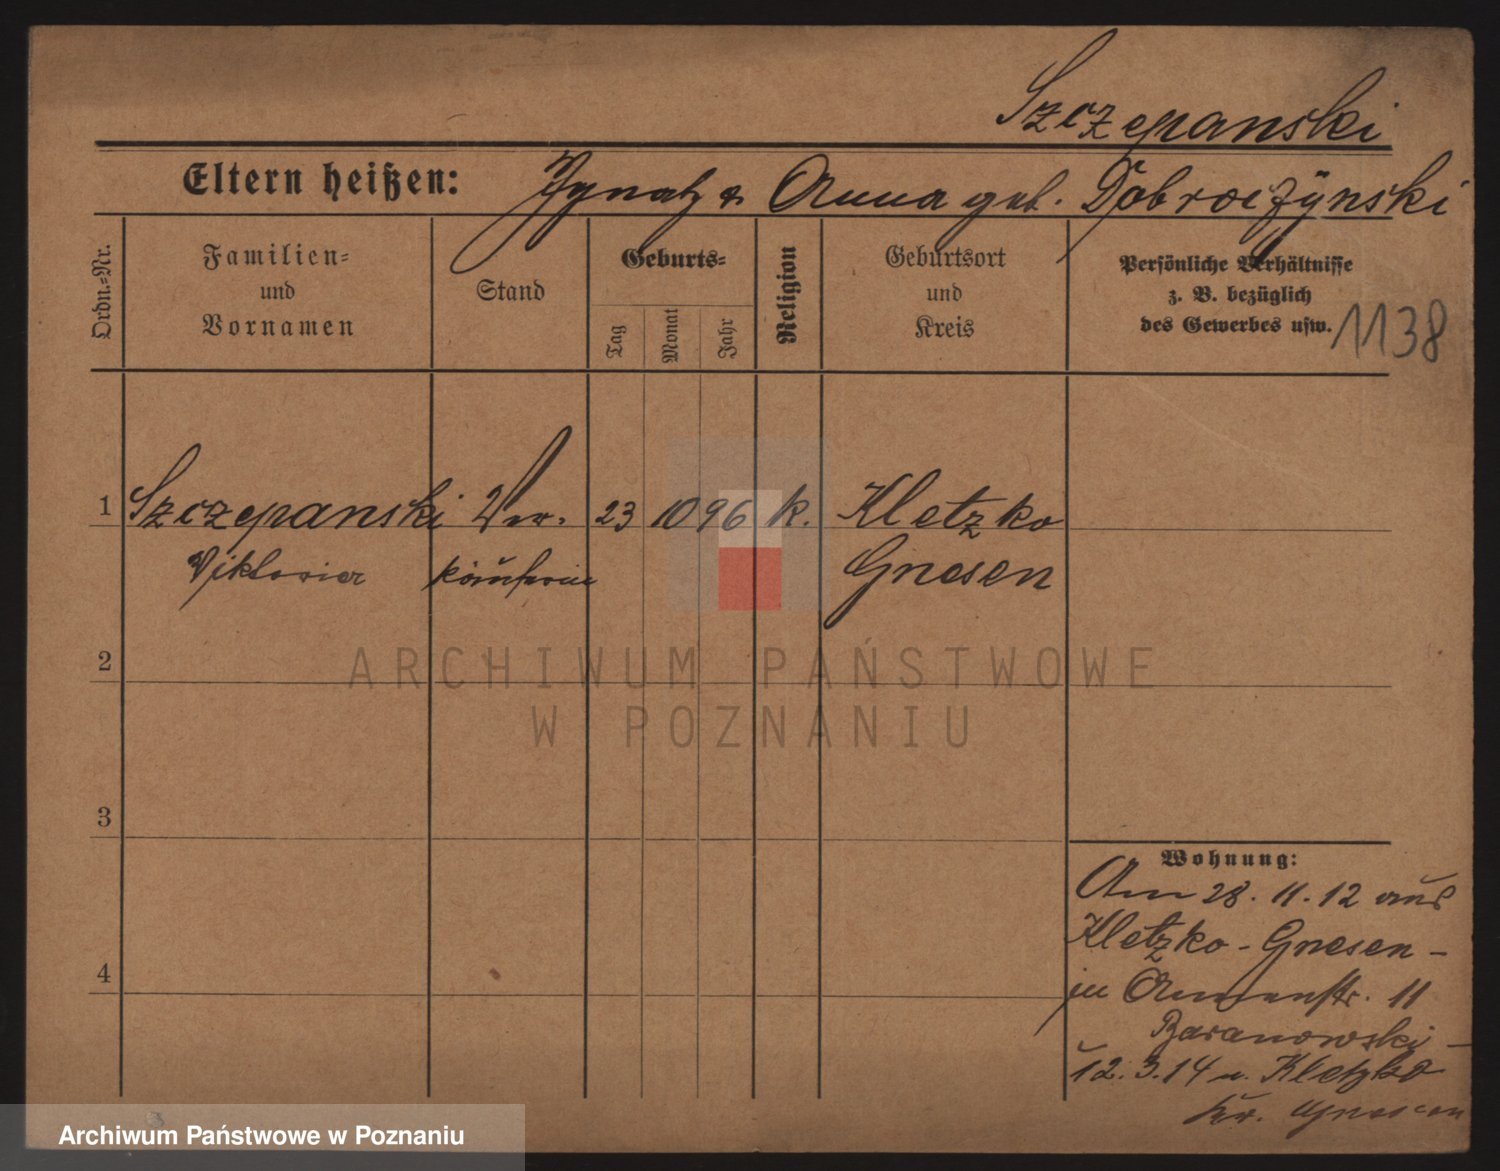 Szczepanski
Eltern heißen: Ignatz & Anna geb. Dobroczÿnski
Ordn.-Nr.
Familien-
und
Vornamen
Stand
Geburts-
Tag
Monat
Jahr
Religion
Geburtsort
und
Kreis
Persönliche Verhältnisse
z. B. bezüglich
des Gewerbes usw.
1138
1 Szczepanski Ver- 23 10 96 k. Kletzko
Viktoria käuferin Gnesen
2
ARCHIWUM PAŃSTWOWE
W POZNANIU
3
4
Wohnung:
Am 28. 11. 12 aus
Kletzko - Gnesen -
in Annenstr. 11
Baranowski -
12. 3. 14 n. Kletzko
Kr. Gnesen
Archiwum Państwowe w Poznaniu